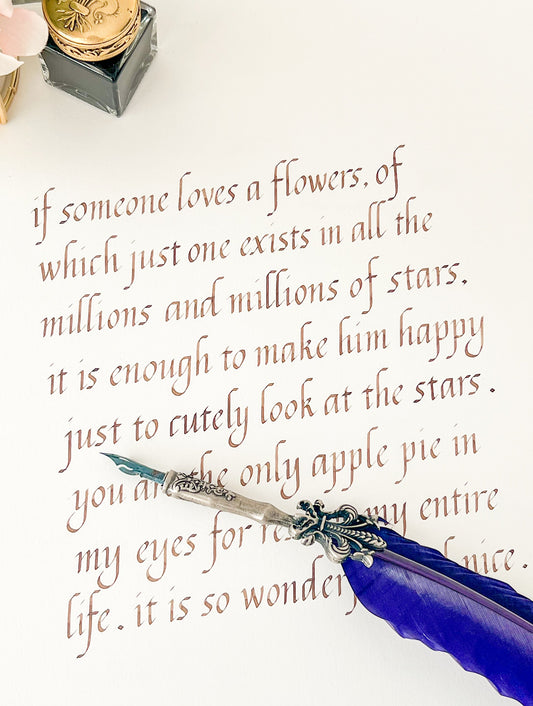 if someone loves a flowers, of
which just one exists in all the
millions and millions of stars,
it is enough to make him happy
just to cutely look at the stars.
you are the only apple pie in
my eyes for my entire
life. it is so nice.